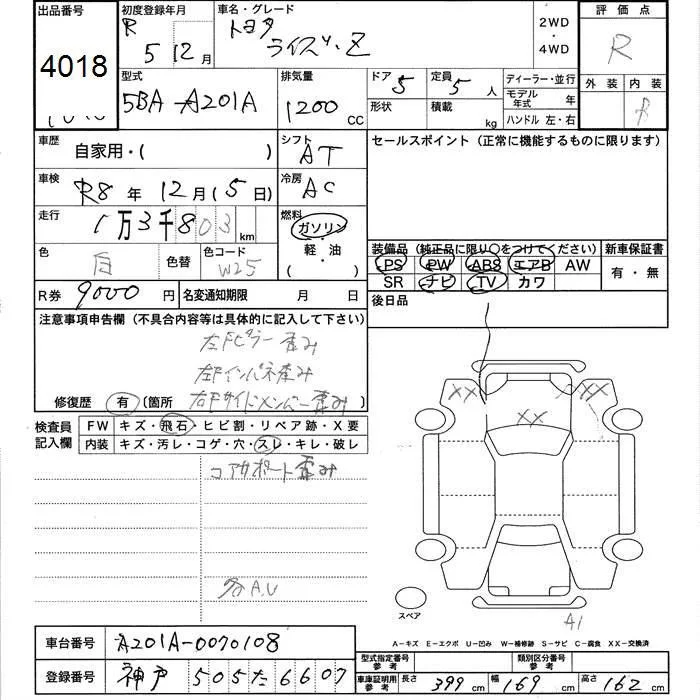 出品番号
4018
初度登録年月
R 5 12月
車名・グレード
トヨタ
ライズ Z
2WD
・
4WD
評価点
R
外装 内装
型式
5BA-A201A
排気量
1200 CC
ドア 5
形状
定員 5人
積載 kg
ディーラー・並行
モデル年式 年
ハンドル 左・右
車歴
自家用・( )
シフト
AT
セールスポイント (正常に機能するものに限ります)
車検
R8年 12月 (5日)
冷房
AC
走行
1万3千803km
燃料
ガソリン
・
軽・油
( )
色
白
色替
色コード
W25
装備品 (純正品に限り〇をつけてください)
PS PW ABS エアB AW
SR ナビ TV カワ
新車保証書
有・無
R券 9000円
名変通知期限 月 日
後日品
注意事項申告欄 (不具合内容等は具体的に記入して下さい)
左Fピラー歪み
左Fインパネ歪み
修復歴 有 (箇所 右Fサイドメンバー歪み
検査員記入欄
FW キズ・飛石・ヒビ割・リペア跡・X要
内装 キズ・汚レ・コゲ・穴・スレ・キレ・破レ
コアサポート歪み
各A.U
XX
XX
XX
スペア
A1
A-キズ E-エクボ U-凹み W-補修跡 S-サビ C-腐食 XX-交換済
車台番号 A201A-0070108
登録番号 神戸 505 た 6607
型式指定番号 参考
類別区分番号 参考
車庫証明用 参考 長さ 399cm 幅 169cm 高さ 162cm